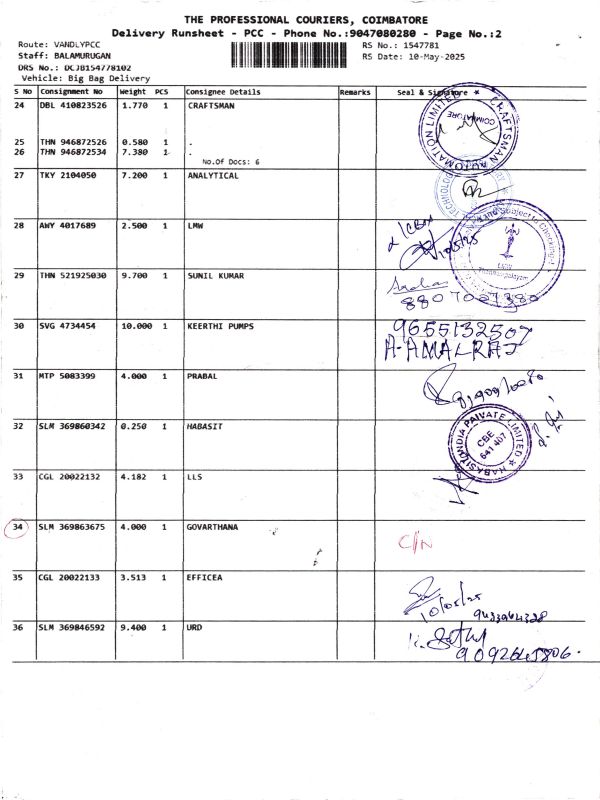 THE PROFESSIONAL COURIERS, COIMBATORE
Delivery Runsheet - PCC - Phone No.:9047080280 - Page No.:2
Route: VANDLYPCC
RS No.: 1547781
Staff: BALAMURUGAN
RS Date: 10-May-2025
DRS No.: DCJB154778102
Vehicle: Big Bag Delivery
S No Consignment No Weight PCS Consignee Details Remarks Seal & Signature
24 DBL 410823526 1.770 1 CRAFTSMAN
CRAFTSMAN AUTOMATION LIMITED
COIMBATORE
25 THN 946872526 0.580 1 .
26 THN 946872534 7.380 1 .
No.Of Docs: 6
27 TKY 2104050 7.200 1 ANALYTICAL
TECHNOLOGY
28 AWY 4017689 2.500 1 LMW
and Subject to Checking
LMW
29 THN 521925030 9.700 1 SUNIL KUMAR
8807007380
30 SVG 4734454 10.000 1 KEERTHI PUMPS
9655132507
A-AMALRAJ
31 MTP 5083399 4.000 1 PRABAL
32 SLM 369860342 0.250 1 HABASIT
HABASIT INDIA PRIVATE LIMITED
CBE
641 407
33 CGL 20022132 4.182 1 LLS
34 SLM 369863675 4.000 1 GOVARTHANA
C/N
35 CGL 20022133 3.513 1 EFFICEA
10/05/25
36 SLM 369846592 9.400 1 URD